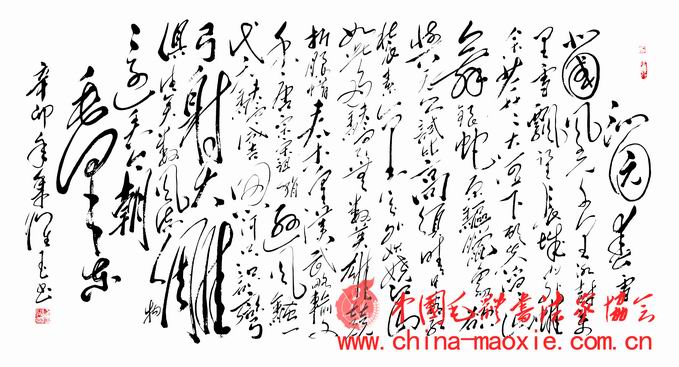 沁园春 雪
北国风光千里冰封万
里雪飘望长城内外惟
余莽莽大河上下顿失滔滔山
舞银蛇原驰蜡象欲
与天公试比高须晴日看红
装素裹分外妖娆江山
如此多娇引无数英雄竞
折腰惜秦皇汉武略输文
采唐宗宋祖稍逊风骚一
代天骄成吉思汗只识弯
弓射大雕
俱往矣数风流人物
还看今朝
毛泽东
辛卯年 玉书
中国毛体书法家协会
www.china-maoxie.com.cn